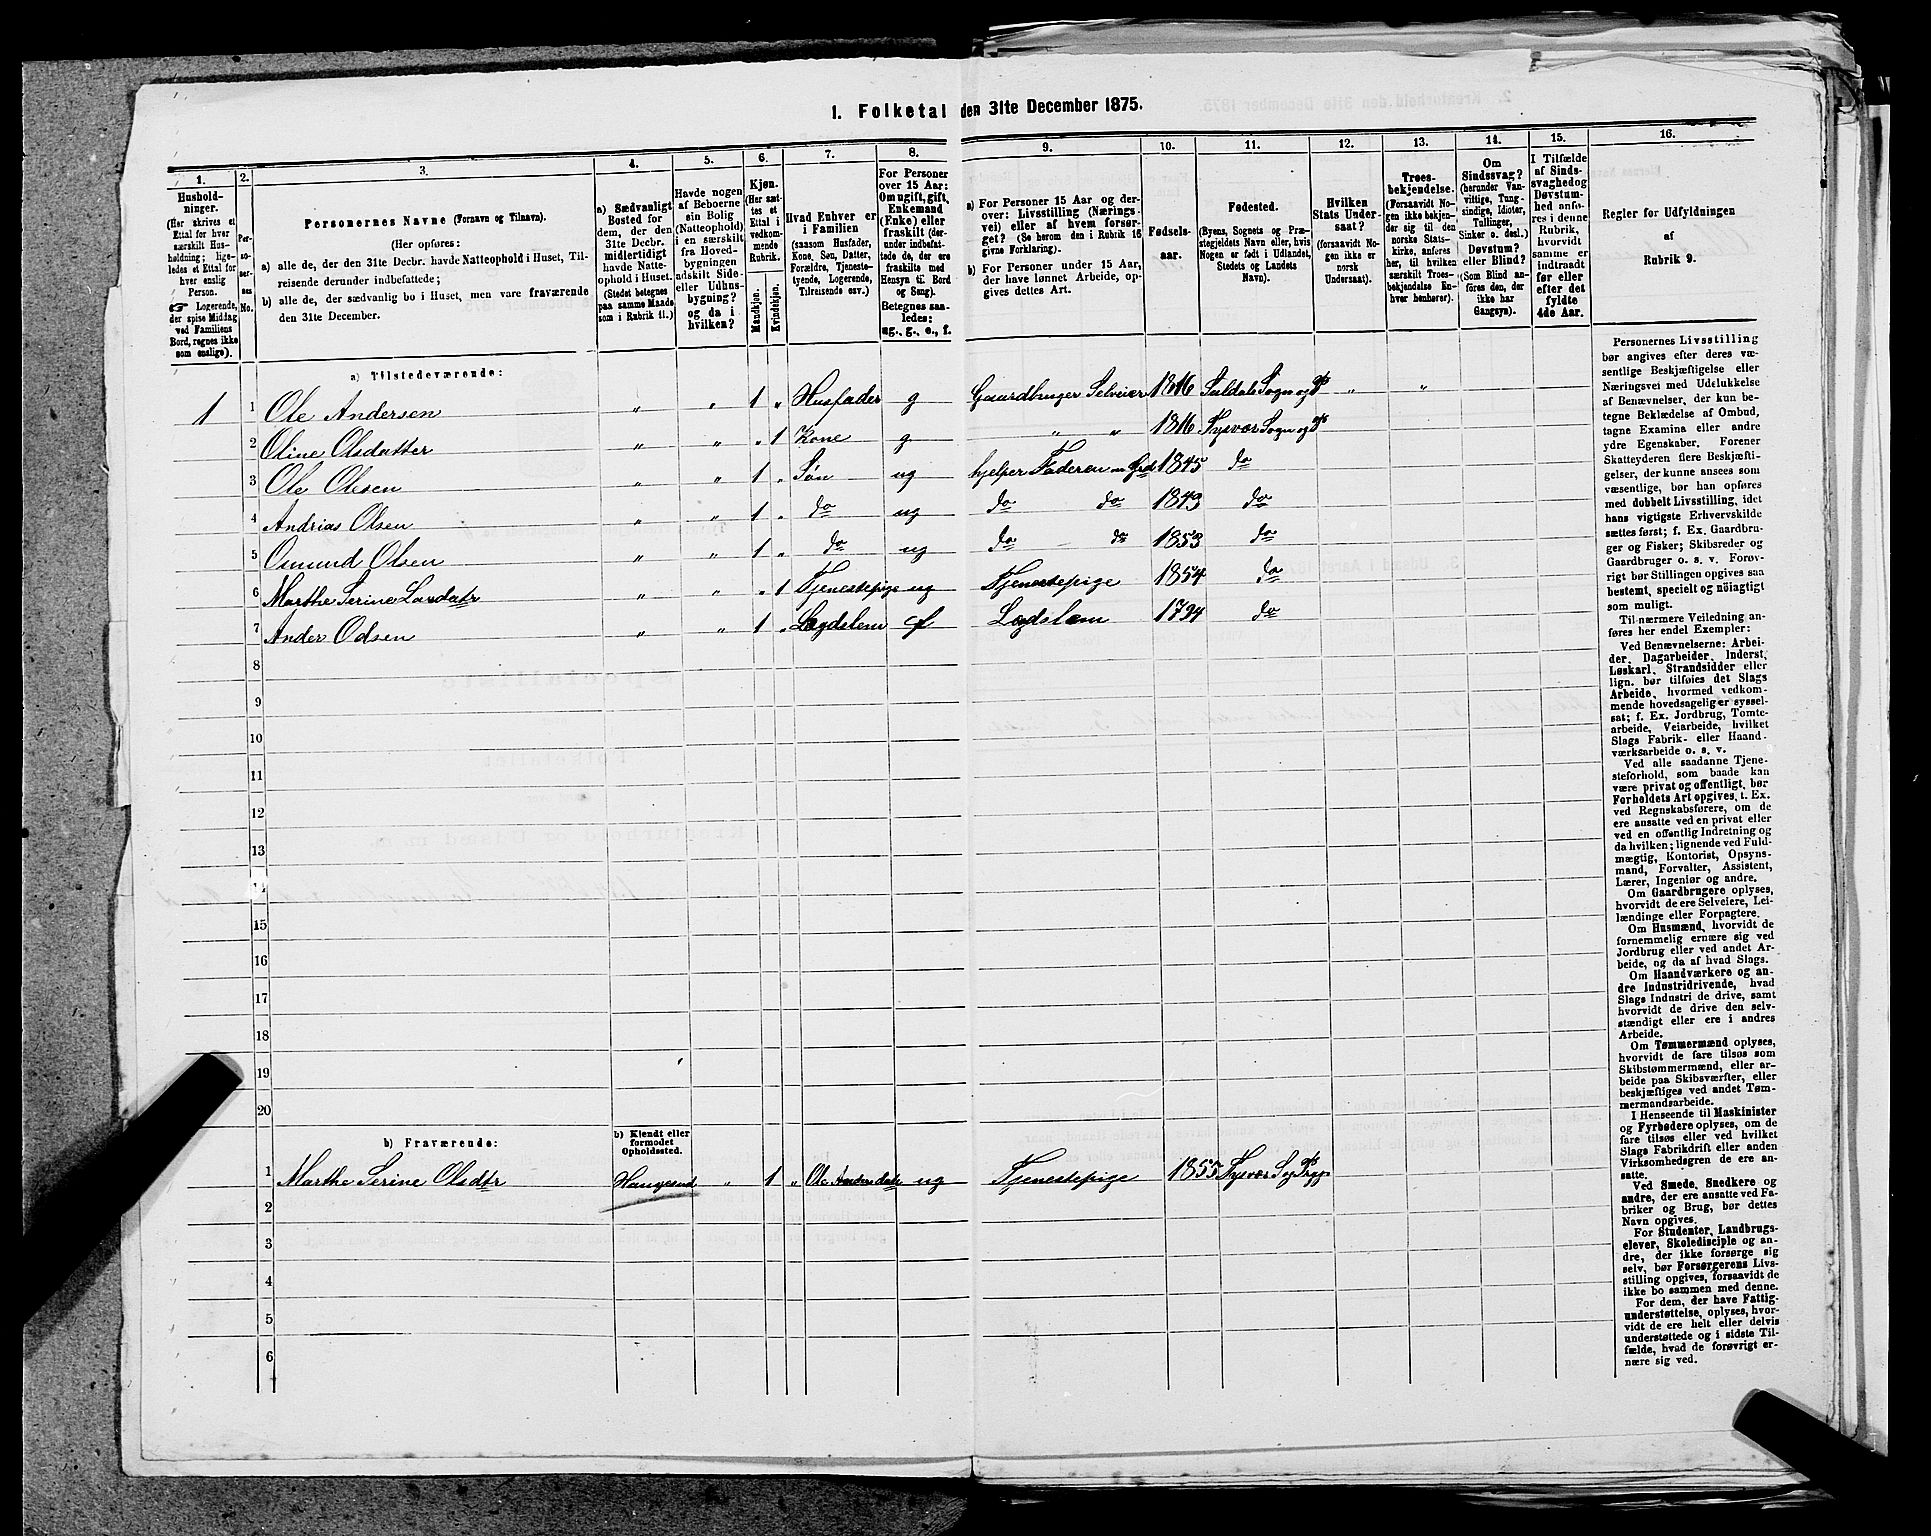 1. Folketal den 31te December 1875.
1.
Husholdninger.
(Her skrives et
Ettal for hver
særskilt Husholdning;
ligeledes
et Ettal for
hver enslig
Person.
Logerende,
der spise Middag
ved Familiens
Bord, regnes ikke
som enslige).
2.
Personernes
No.
3.
Personernes Navne (Fornavn og Tilnavn).
(Her opføres:
a) alle de, der den 31te Decbr. havde Natteophold i Huset, Tilreisende
derunder indbefattede;
b) alle de, der sædvanlig bo i Huset, men vare fraværende
den 31te December.
4.
a) Sædvanligt
Bosted for
dem, der den
31te Decbr.
midlertidigt
havde Natteophold
i Huset.
(Stedet betegnes
paa samme Maade
som i Rubrik 11.)
5.
Havde nogen
af Beboerne
sin Bolig
(Natteophold)
i en særskilt
fra Hovedbygningen
adskilt Side-
eller Udhusbygning?
og da i
hvilken?
6.
Kjøn.
(Her sættes
et
Ettal i
vedkommende
Rubrik.
Mandkjøn.
Kvindekjøn.
7.
Hvad Enhver er
i Familien
(saasom Husfader,
Kone, Søn, Datter,
Forældre, Tjenestetyende,
Logerende,
Tilreisende osv.)
8.
For Personer
over 15 Aar:
Om ugift, gift,
Enkemand
(Enke) eller
fraskilt (derunder
indbefattede
de, der ere
fraskilte med
Hensyn til Bord
og Seng).
Betegnes saaledes:
ug., g., e., f.
9.
a) For Personer 15 Aar og derover:
Livsstilling (Næringsvei)
eller af hvem forsørget?
(Se herom den i Rubrik 16
givne Forklaring).
b) For Personer under 15 Aar,
der have lønnet Arbeide, opgives
dettes Art.
10.
Fødselsaar.
11.
Fødested.
(Byens, Sognets og Præstegjeldets
Navn eller, hvis
Nogen er født i Udlandet,
Stedets og Landets
Navn).
12.
Hvilken
Stats Undersaat?
(forsaavidt Nogen
ikke er
norsk
Undersaat).
13.
Troesbekjendelse.
(Forsaavidt Nogen
ikke bekjender
sig til den
norske Statskirke,
anføres
her, til hvilken
særskilt Troesbekjendelse
Enhver
henhører).
14.
Om
Sindssvag?
(herunder Vanvittige,
Tungsindige,
Idioter,
Tullinger,
Sinker o. desl.)
Døvstum?
eller Blind?
(Som Blind anføres
den, der
ikke har
Gangsyn).
15.
I Tilfælde
af Sindssvaghed
og
Døvstumhed
anføres
i denne
Rubrik,
hvorvidt
samme er
indtraadt
før eller
efter det
fyldte
4de Aar.
16.
Regler for Udfyldningen
af
Rubrik 9.
a) Tilstedeværende:
1 1 Ole Andersen " " 1 " Husfader g Gaardbruger Selveier 1816 Suldals Sogn og P " "
2 Oline Olsdatter " " " 1 Kone g " " 1816 Tysvær Sogn og
3 Ole Olesen " " 1 " Søn ug hjelper Faderen m Grd 1845 do
4 Andrias Olsen " " 1 " do ug do do 1843 do
5 Osmund Olsen " " 1 " do ug do do 1853 do
6 Marthe Serine Larsdatr " " " 1 Tjenestepige ug Tjenestepige 1854 do
7 Ander Odsen " " 1 " Lægdslem Lægdslem 1794 do
8
9
10
11
12
13
14
15
16
17
18
19
20
b) Fraværende:
b) Kjendt eller
formodet
Opholdssted.
1 Marthe Serine Olsdtr Haugesund " 1 " Ole ug Tjenestepige 1855 Tysvær
2
3
4
5
6
Personernes Livsstilling
bør angives efter deres væsentlige
Beskjæftigelse eller
Næringsvei med Udelukkelse
af Benævnelser, der kun betegne
Beklædelse af Ombud,
tagne Examina eller andre
ydre Egenskaber. Forener
Skatteyderen flere Beskjæftigelser,
der kunne ansees som
væsentlige, bør han opføres
med dobbelt Livsstilling, idet
hans vigtigste Erhvervskilde
sættes først; f. Ex. Gaardbruger
og Fisker; Skibsreder og
Gaardbruger o. s. v. Forøvrigt
bør Stillingen opgives saa
bestemt, specielt og nöiagtigt
som muligt.
Til nærmere Veiledning anføres
her endel Exempler:
Ved Benævnelserne: Arbeider,
Dagarbeider, Inderst,
Løskarl, Strandsidder eller
lign. bør tilføies det Slags
Arbeide, hvormed vedkommende
hovedsagelig er sysselsat;
f. Ex. Jordbrug, Tomtearbeide,
Veiarbeide, hvilket
Slags Fabrik- eller Haandværksarbeide
o. s. v.
Ved alle saadanne Tjenesteforhold,
som baade kan
være privat og offentligt, bør
Forholdets Art opgives, t. Ex.
ved Regnskabsførere, om de
ere ansatte ved en privat eller
ved en offentlig Indretning og
da hvilken; lignende ved Fuldmægtig,
Kontorist, Opsynsmand,
Forvalter, Assistent,
Lærer, Ingeniør og andre.
Om Gaardbrugere oplyses,
hvorvidt de ere Selveiere, Leilændinge
eller Forpagtere.
Om Husmænd, hvorvidt de
fornemmelig ernære sig ved
Jordbrug eller ved andet Arbeide,
og da af hvad Slags.
Om Haandværkere og andre
Industridrivende, hvad
Slags Industri de drive, samt
hvorvidt de drive den selvstændigt
eller ere i andres
Arbeide.
Om Tømmermænd oplyses,
hvorvidt de fare tilsøs som
Skibstømmermænd, eller arbeide
paa Skibsværfter, eller
beskjæftiges ved andet Tømmermandsarbeide.
I Henseende til Maskinister
og Fyrbødere oplyses, om de
fare tilsøs eller ved hvilket
Slags Fabrikdrift eller anden
Virksomhed de ere ansatte.
Ved Smede, Snedkere og
andre, der ere ansatte ved Fabriker
og Brug, bør dettes
Navn opgives.
For Studenter, Landbrugselever,
Skoledisciple og andre,
der ikke forsørge sig
selv, bør Forsørgerens Livsstilling
opgives, forsaavidt de
ikke bo sammen med denne.
For dem, der have Fattigunderstøttelse,
oplyses, hvorvidt
de ere helt eller delvis
understøttede og i sidste Tilfælde,
hvad de forøvrigt ernære
sig ved.